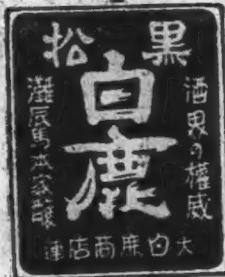 黒松
白鹿
酒界の權威
灘辰馬本家釀
大白鹿商店連